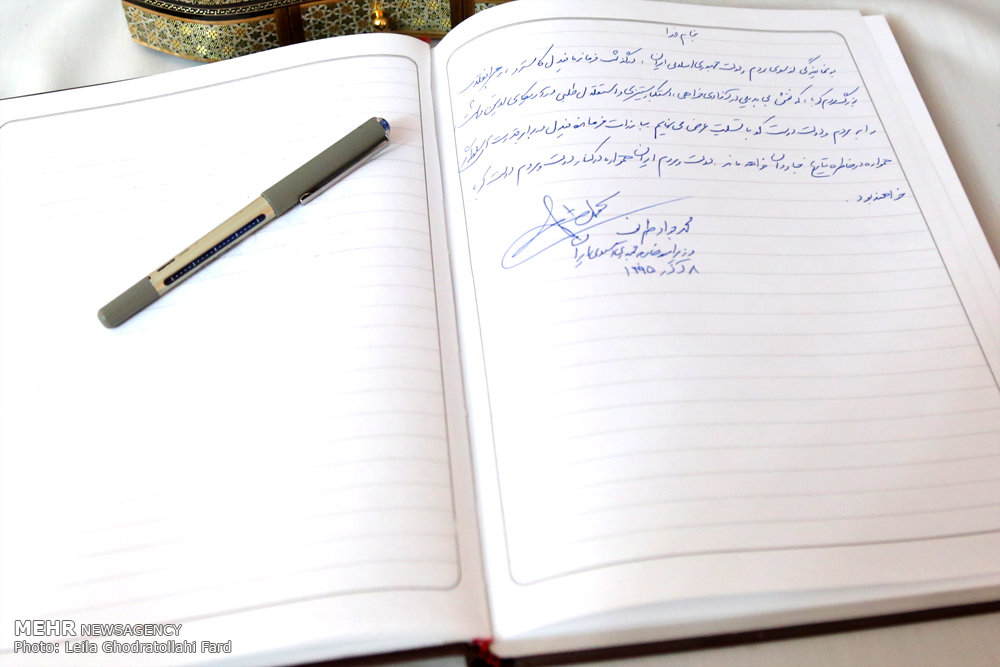 بنام خدا
به نمایندگی از سوی مردم و دولت جمهوری اسلامی ایران، درگذشت فرمانده فیدل کاسترو، رهبر انقلاب
و بزرگمرد کوبا، که نقش بی بدیلی در آزادی خواهی، استکبارستیزی و استقلال طلبی در آمریکای لاتین داشت
را به مردم و دولت دوست کوبا تسلیت عرض می نمایم. مبارزات فرمانده فیدل در برابر
همواره در خاطره تاریخ جاودان خواهد ماند. دولت و مردم ایران همواره در کنار دولت و مردم دوست کوبا
خواهند بود.
محمد جواد ظریف
وزیر امور خارجه جمهوری اسلامی ایران
۸ آذر ۱۳۹۵
MEHR NEWSAGENCY
Photo: Leila Ghodratollahi Fard